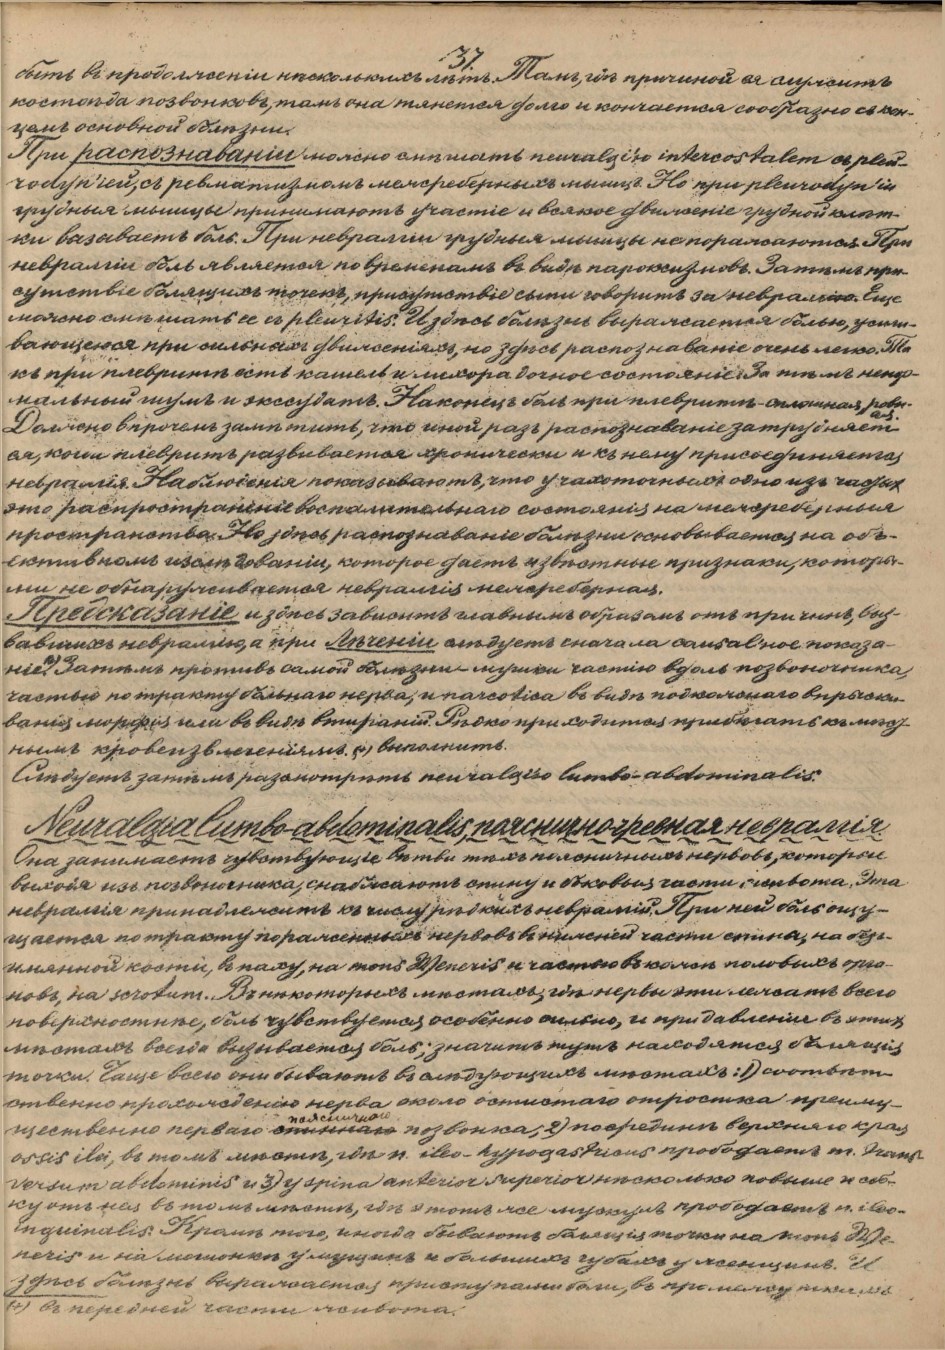 37.
быть въ продолженіи нѣсколькихъ лѣтъ. Тамъ, гдѣ причиной ея служитъ
костоѣда позвонковъ, тамъ она тянется долго и кончается сообразно съ кон-
цемъ основной болѣзни.
При распознаваніи можно смѣшать neuralgi'ю intercostalem съ pleu-
rodyn'іей, съ ревматизмомъ межреберныхъ мышцъ. Но при pleurodyn'іи
грудныя мышцы принимаютъ участіе и всякое движеніе грудной клѣт-
ки вазаваетъ боль. При невралгіи грудныя мышцы не поражаются. При
невралгіи боль является по временамъ въ видѣ пароксизмовъ. Затѣмъ при-
сутствіе болящихъ точекъ, присутствіе сыпи говоритъ за невралгію. Еще
можно смѣшать ее съ pleuritis. И здѣсь болѣзнь выражается болью, усили-
вающеюся при сильныхъ движеніяхъ, но здѣсь распознаваніе очень легко. Та
къ при плевритѣ есть кашель и лихорадочное состояніе. Затѣмъ ненор-
мальный шумъ и экссудатъ. Наконецъ боль при плевритѣ сплошная, ровн-
ая.
Должно впрочемъ замѣтить, что иной разъ распознаваніе затрудняет
ся, когда плевритъ развивается хронически и къ нему присоединяется
невралгія. Наблюденія показываютъ, что у чахоточныхъ одно изъ частых
это распространеніе воспалительнаго состоянія на межреберныя
пространства. Но здѣсь распознаваніе болѣзни основывается на объ-
ективномъ изслѣдованіи, которое даетъ извѣстные признаки, которы-
ми не обнаруживается невралгія межреберная.
Предсказаніе и здѣсь зависитъ главнымъ образомъ отъ причинъ, выз-
вавшихъ невралгію, а при лѣченіи слѣдуетъ сначала causal'ное показа-
ніе. Затѣмъ противъ самой болѣзни мушки частію вдоль позвоночника,
частью по тракту больнаго нерва, и narcotica въ видѣ подкожнаго впрыски-
ванія морфія или въ видѣ втираній. Рѣдко приходится прибѣгать къ мѣст-
нымъ кровеизвлеченіямъ. (+) выполнить.
Слѣдуетъ затѣмъ разсмотрѣть neuralgi'ю lumbo-abdominalis.
Neuralgia lumbo-abdominalis, пояснично-чревная невралгія.
Она занимаетъ чувствующіе вѣтви тѣхъ поясничныхъ нервовъ, которые
выходя изъ позвоночника, снабжаютъ спину и боковыя части живота. Эта
невралгія принадлежитъ къ числу рѣдкихъ невралгій. При ней боль ощу-
щается по тракту пораженныхъ нервовъ въ нижней части спины, на безъ-
имянной кости, въ паху, на mons Veneris и частью въ кожѣ половыхъ орга-
новъ, на scrotum. Въ нѣкоторыхъ мѣстахъ, гдѣ нервы эти лежатъ всего
поверхностнѣе, боль чувствуется особенно сильно, и при давленіи въ этихъ
мѣстахъ всегда вызывается боль; значитъ тутъ находятся болящія
точки. Чаще всего они бываютъ въ слѣдующихъ мѣстахъ: 1) соотвѣт-
ственно прохожденію нерва около остистаго отростка преиму-
поясничнаго
щественно перваго спиннаго позвонка; 2) посрединѣ верхняго края
ossis ilei, въ томъ мѣстѣ, гдѣ n. ileo-hypogastricus прободаетъ m. trans-
versum abdominis и 3) у spina anterior superior нѣсколько повыше и сбо-
ку отъ нея въ томъ мѣстѣ, гдѣ этотъ же мускулъ прободаетъ n. ileo-
inguinalis. Кромѣ того, иногда бываютъ болящія точки на mons Ve-
neris и на мошонкѣ у мущинъ и большихъ губахъ у женщинъ. И
здѣсь болѣзнь выражается приступами боли, въ промежуткахъ
(+) въ передней части живота.